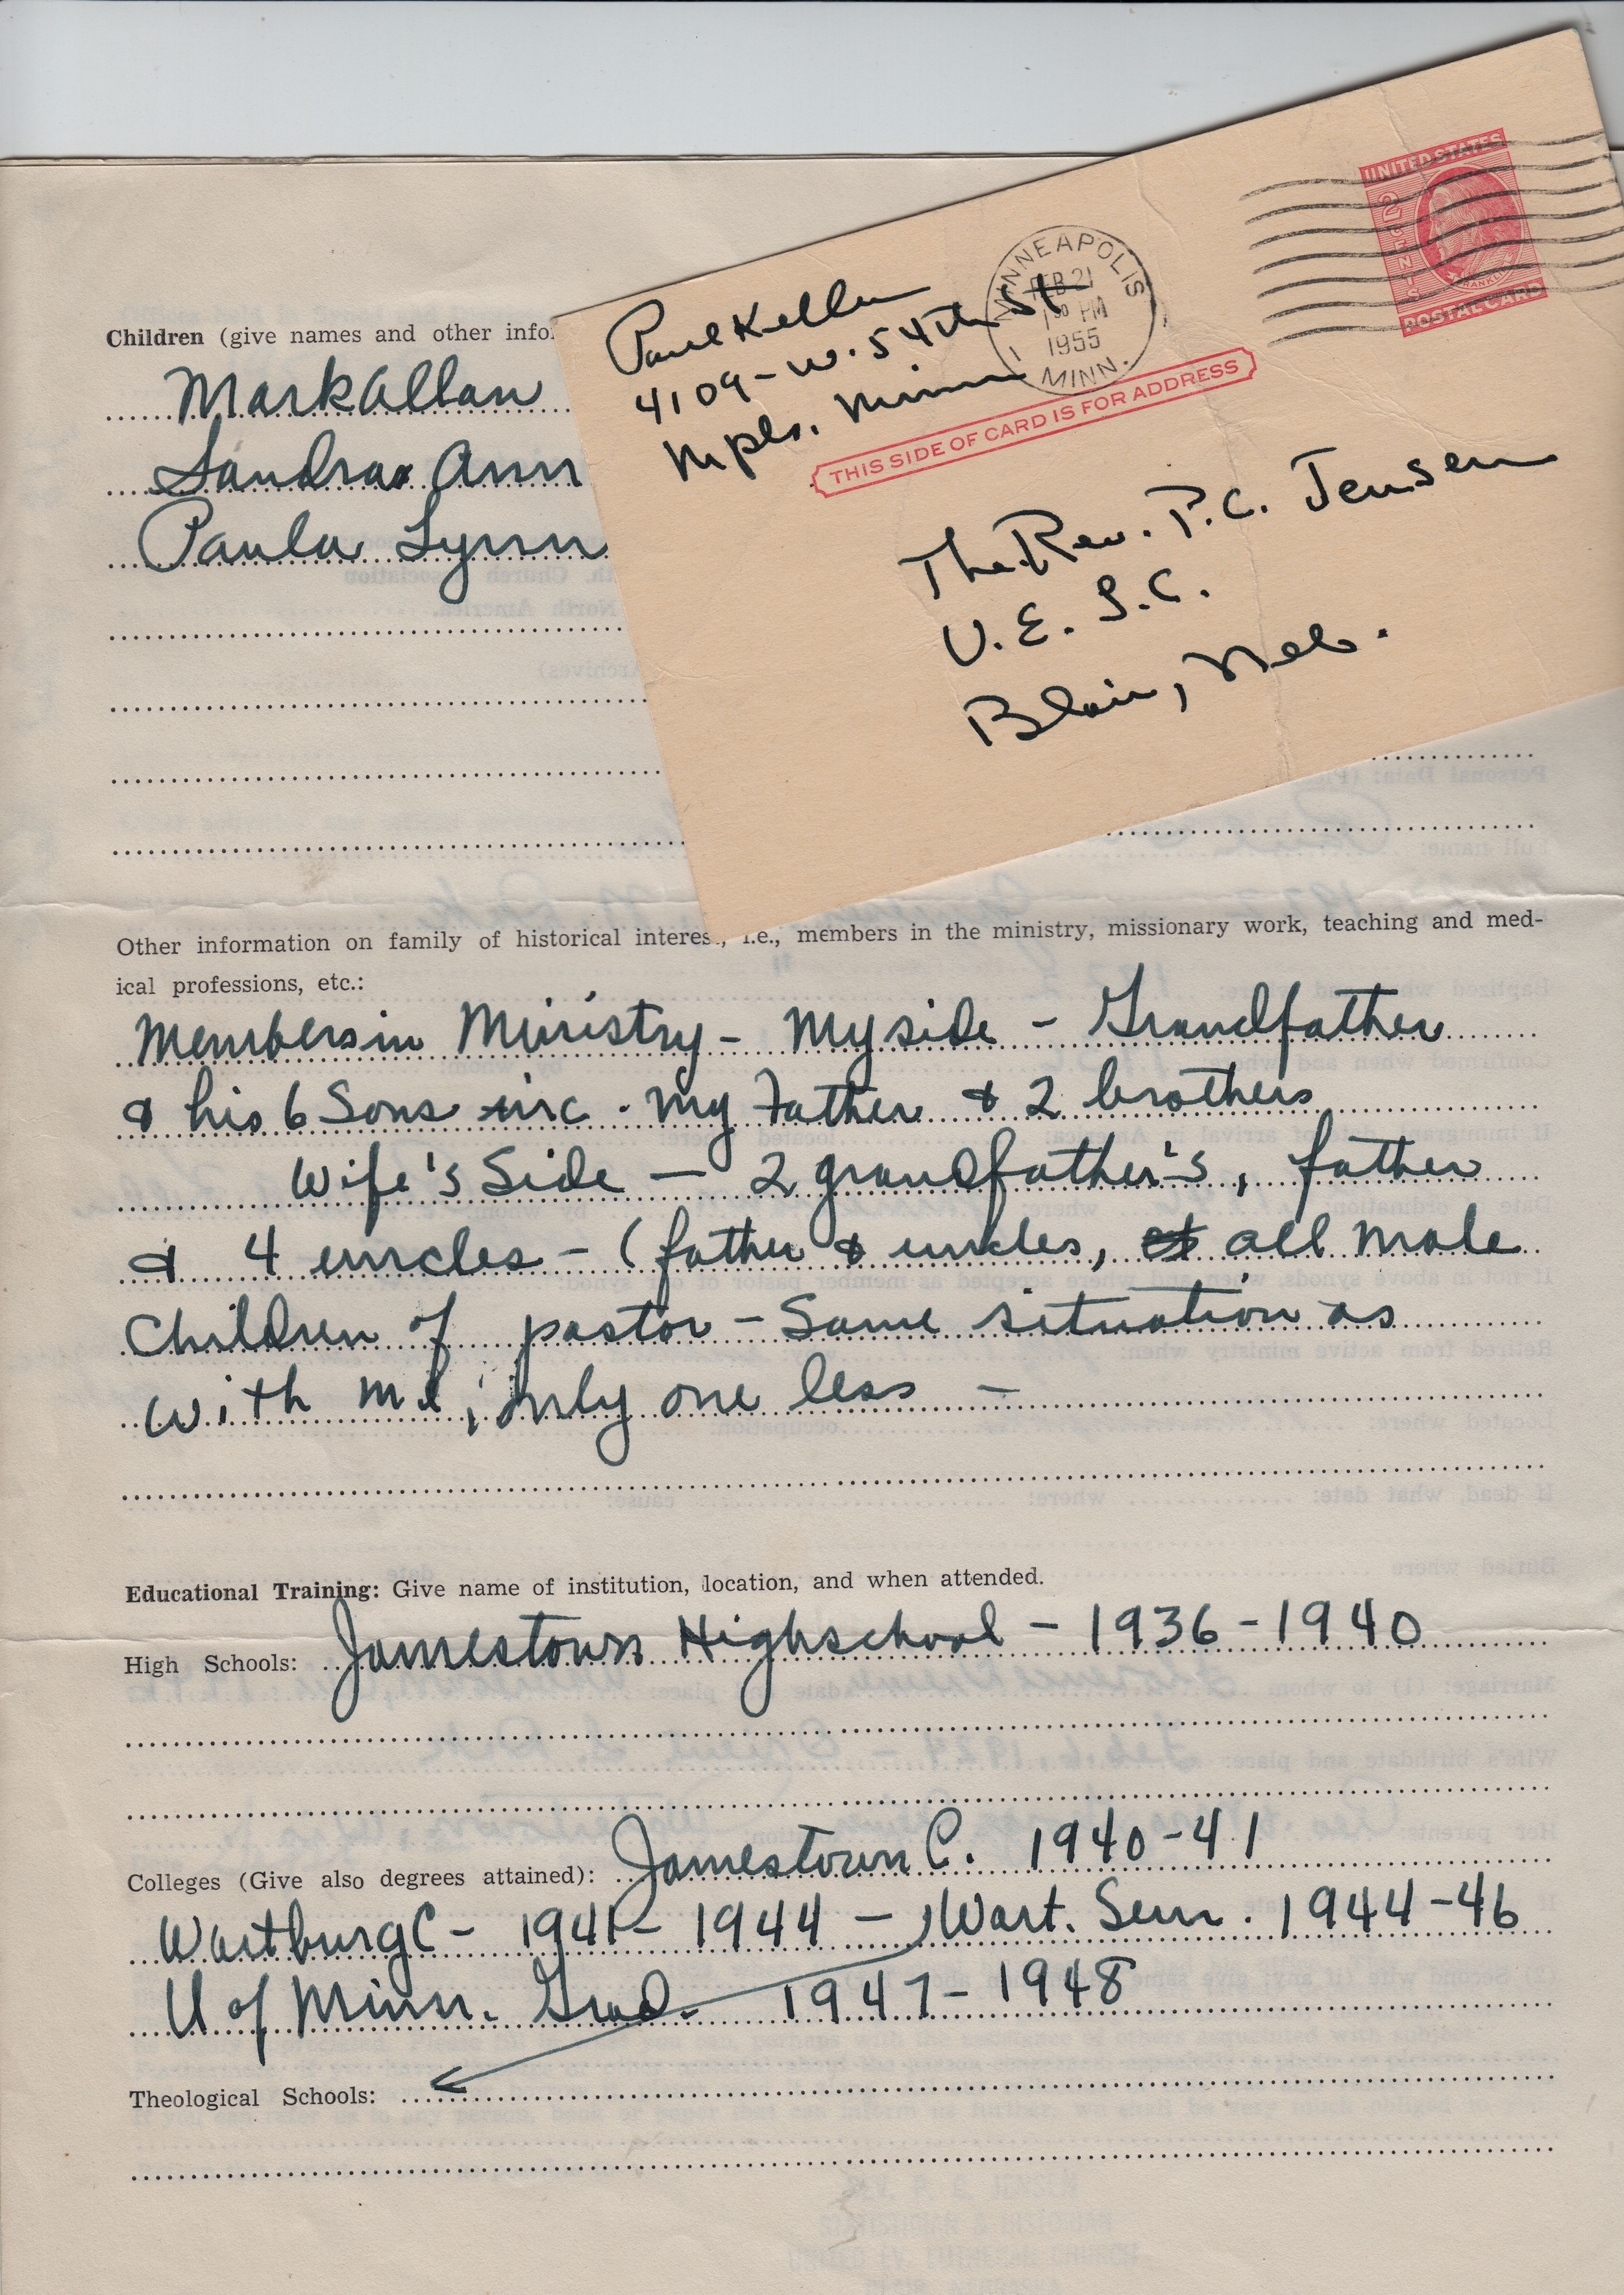 Paul Keller
4109-W. 54th St
Mpls. Minn
MINNEAPOLIS
FEB 21
PM
1955
1 MINN.
UNITED STATES
2 CENTS
FRANKLIN
POSTAL CARD
THIS SIDE OF CARD IS FOR ADDRESS
The Rev. P.C. Jensen
U.E.L.C.
Blair, Neb.
Children (give names and other info
Mark Allan
Sandra Ann
Paula Lynn
Other information on family of historical interest, i.e., members in the ministry, missionary work, teaching and med-
ical professions, etc.:
Members in Ministry - My side - Grandfather
& his 6 Sons inc. my Father & 2 brothers
Wife's Side - 2 grandfather's, father
& 4 uncles - (father & uncles, all male
Children of pastor - Same situation as
with me, only one less -
Educational Training: Give name of institution, location, and when attended.
High Schools: Jamestown Highschool - 1936-1940
Colleges (Give also degrees attained): Jamestown C. 1940-41
Wartburg C - 1941-1944 - Wart. Sem. 1944-46
U of Minn. Grad. 1947-1948
Theological Schools: